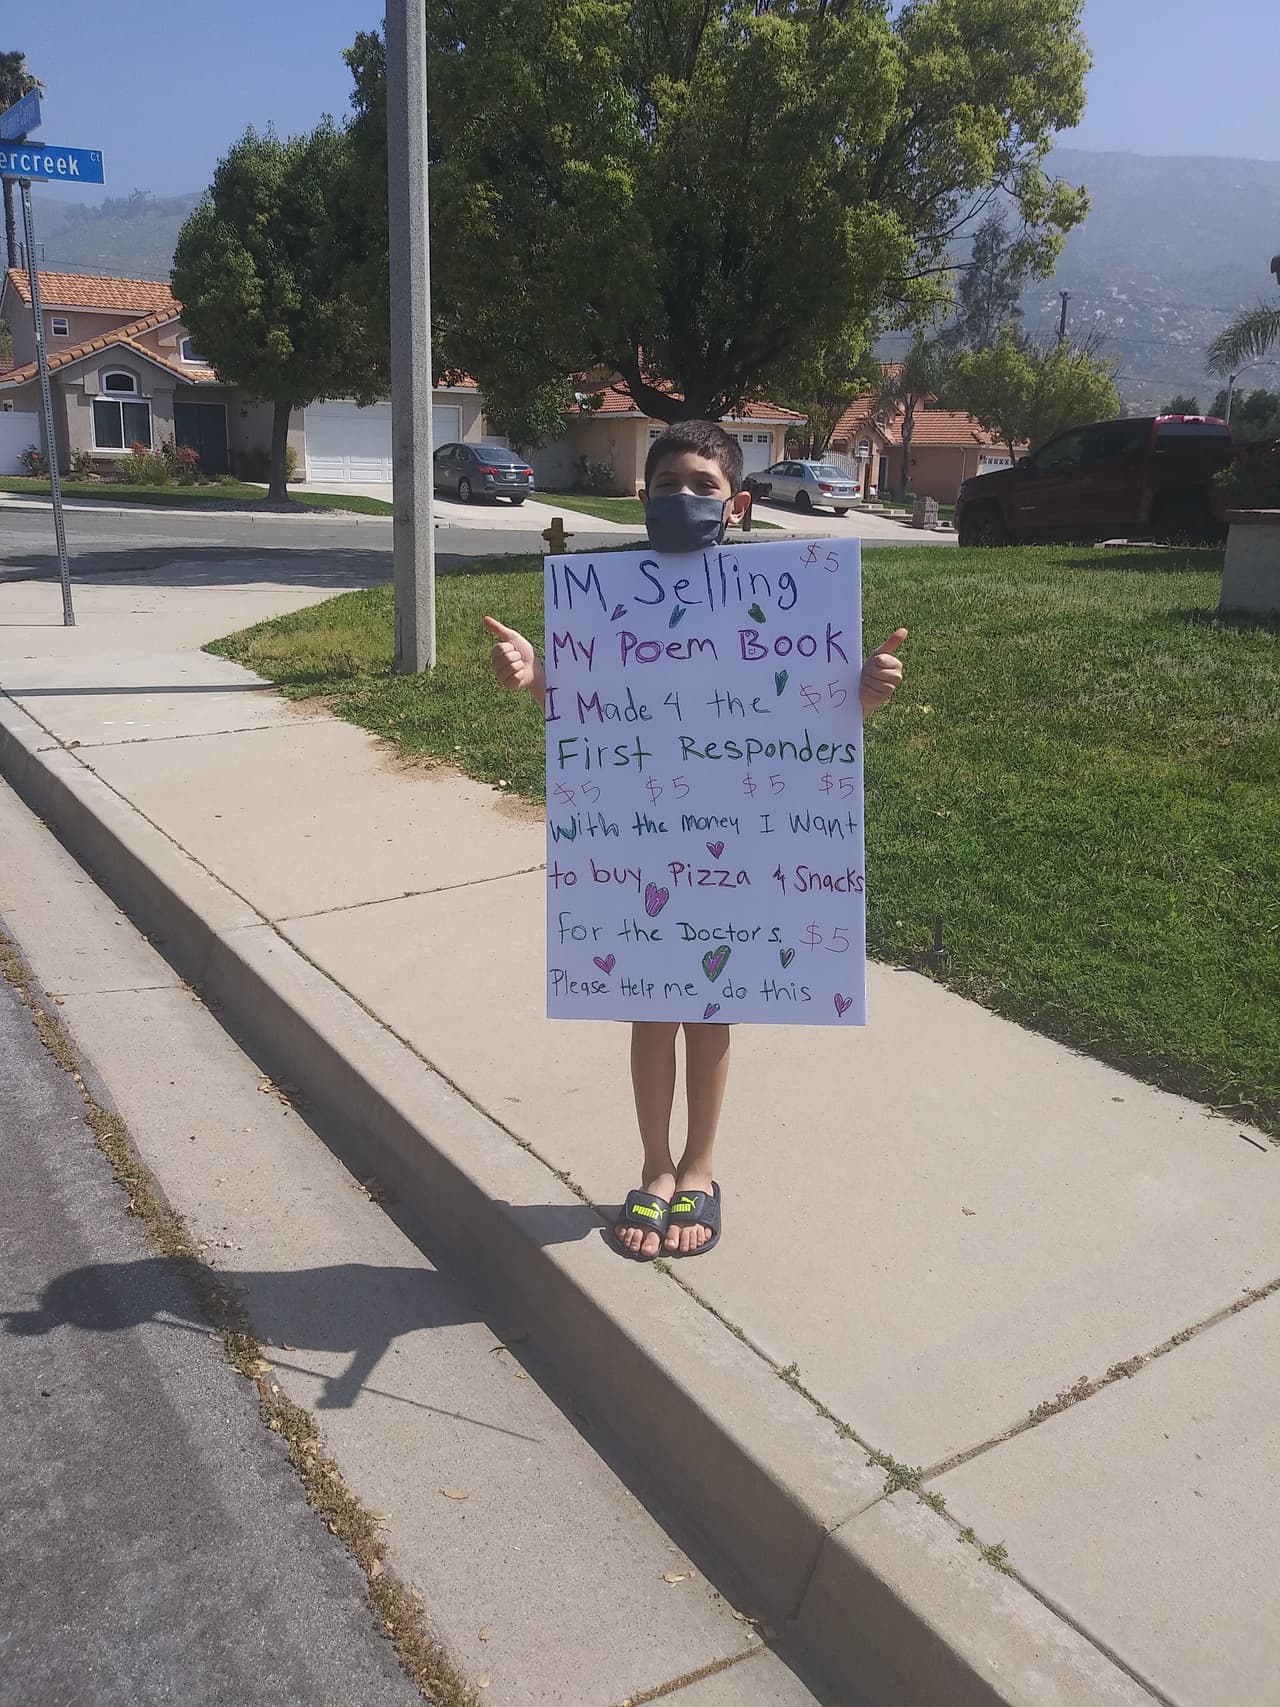 ercreek Ct
$5
IM Selling
My Poem Book
I Made 4 the $5
First Responders
$5 $5 $5 $5
With the money I Want
to buy Pizza & Snacks
for the Doctors. $5
Please Help me do this
PUMA
PUMA